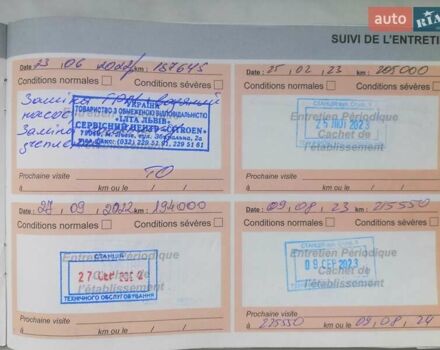 auto RIA
SUIVI DE L'ENTRETI
Date : 23, 06 2022, km : 187645
Conditions normales Conditions sévères
Заміна ГРМ, водяний
насос
Заміна
УКРАЇНА
ТОВАРИСТВО З ОБМЕЖЕНОЮ ВІДПОВІДАЛЬНІСТЮ
"ЛІТА ЛЬВІВ"
СЕРВІСНИЙ ЦЕНТР "CITROEN"
229 51 61
l'établissement
ТО
Prochaine visite
à km ou le / /
Date : 25, 02, 23 km : 205000
Conditions normales Conditions sévères
Entretien Périodique
25 ЛЮТ 2023
Cachet de
l'établissement
Prochaine visite
à km ou le / /
Date : 27, 09, 2022 km : 194000
Conditions normales Conditions sévères
Entretien Périodique
СТАНЦІЯ
Cachet de
27 СЕР
l'établissement
ТЕХНІЧНОГО ОБСЛУГОВУВАННЯ
Prochaine visite
à km ou le / /
Date : 09, 08, 23 km : 215550
Conditions normales Conditions sévères
Entretien Périodique
Cachet de
09 СЕР 2023
l'établissement
Prochaine visite
à 225550 km ou le 09, 08, 24